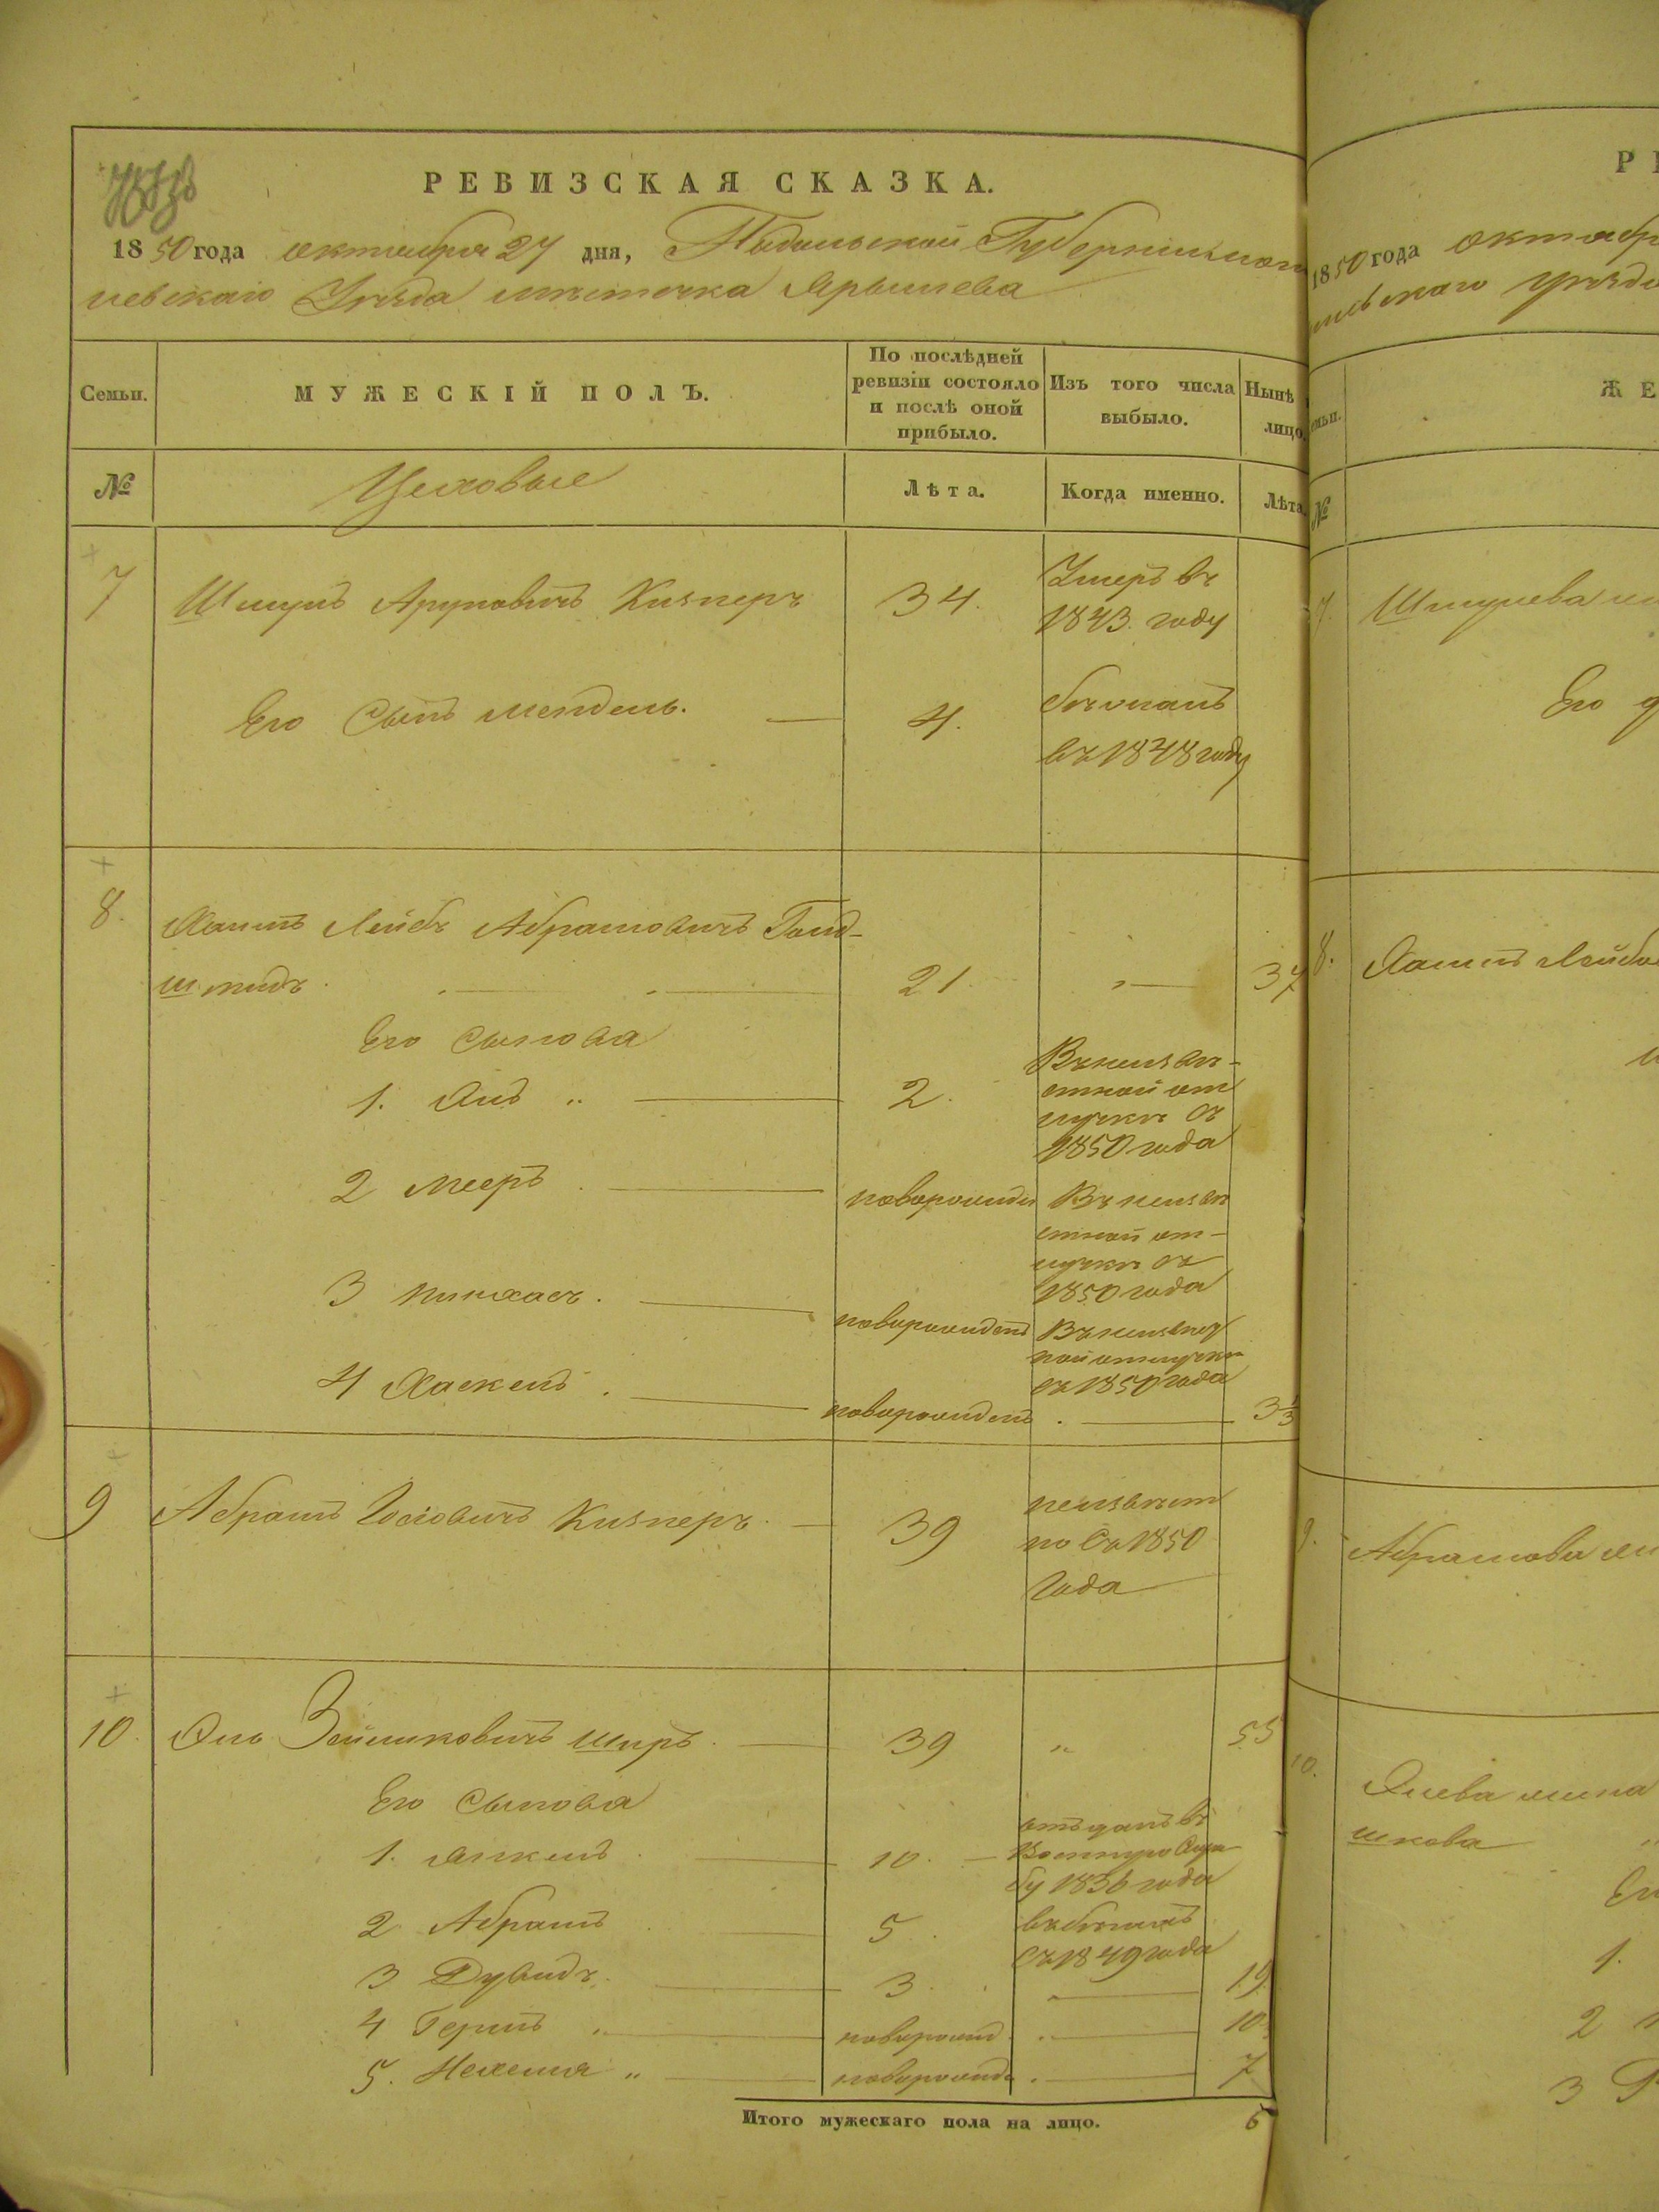 РЕВИЗСКАЯ СКАЗКА.
1850 года октября 27 дня, Подольской Губернии
левскаго Уезда местечка Ярышева
Семьи.
МУЖЕСКІЙ ПОЛЪ.
По послѣдней ревизіи состояло и послѣ оной прибыло.
Изъ того числа выбыло.
Нынѣ
лицо.
№
Цеховые
Лѣта.
Когда именно.
Лѣта.
7 Шмулъ Аруновичъ Кизнеръ 34. Умеръ въ
1843. году
Его Сынъ Мендель. 4.
въ 1848 году
8. Хаимъ Лейбъ Абрамовичъ Голд-
штидъ. 21. 37
Его Сынова
1. 2. Въ неизвѣ-
стной от
лучкѣ съ
1850 года
2 Мееръ новорожден Въ неизвѣ
стной от-
лучкѣ съ
1850 года
3 Пинхасъ. новорожденъ Въ неизвѣст
ной отлучкѣ
съ 1850 года
4 Хаскель. новорожденъ. 3 1/3
9 Абрамъ Іосіовичъ Кизнеръ. 39 неизвѣст
но Съ 1850
Года
10. Зейликовичъ Широ. 39 " 55
Его Сынова
1. Янкель. 10. отъданъ въ
1836 года
2 Абрамъ 5.
съ 1849 года
3 Дувидъ. 3. 19.
4 Гершъ " новорожд. 10.
5. Нехемия " новорожде. 7
Итого мужескаго пола на лицо. 5
РЕ
1850 года октябр
левскаго уезда
мьи.
ЖЕ
№
7. Шмулева
Его д
8. Хаимъ Лейбо
9. Абрамова
10.
шкова
Ег
1.
2
3